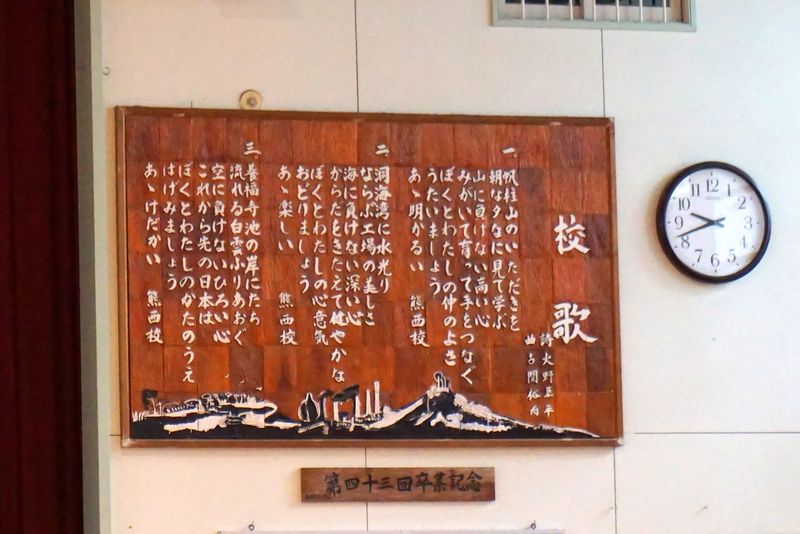 校歌
詩 火野葦平
曲 古関裕而
一、帆柱山のいただきを
朝な夕なに見て学ぶ
山に負けない高い心
みがいて育って手をつなぐ
ぼくとわたしの仲のよさ
うたいましょう
あゝ明かるい 熊西校
二、洞海湾に水光り
ならぶ工場の美しさ
海に負けない深い心
からだをきたえて健やかな
ぼくとわたしの心意気
おどりましょう
あゝ楽しい 熊西校
三、養福寺池の岸にたち
流れる白雲ふりあおぐ
空に負けないひろい心
これから先の日本は
ぼくとわたしのかたのうえ
はげみましょう
あゝけだかい 熊西校
第四十三回卒業記念
12
1
2
3
4
5
6
7
8
9
10
11